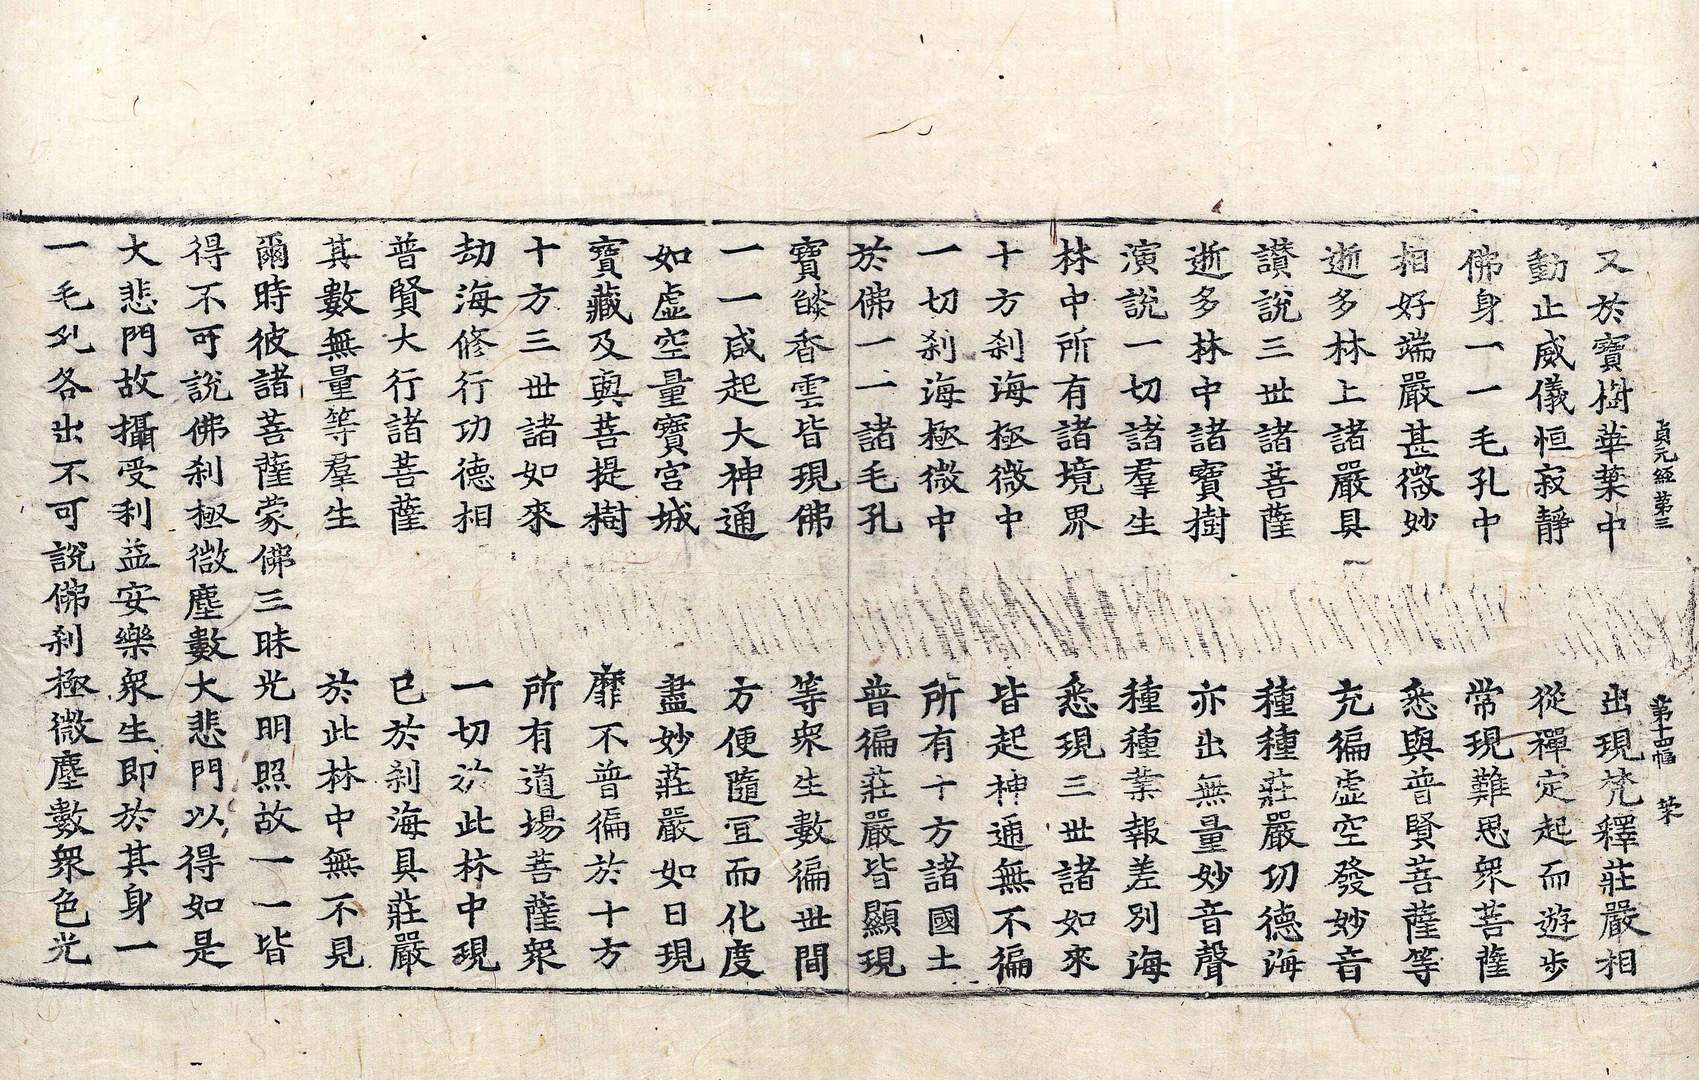 貞元經第三 第十四幅 茱
又於寶樹華葉中 出現梵釋莊嚴相
動止威儀恒寂靜 從禪定起而遊步
佛身一一毛孔中 常現難思衆菩薩
相好端嚴甚微妙 悉與普賢菩薩等
逝多林上諸嚴具 充徧虛空發妙音
讃說三世諸菩薩 種種莊嚴功德海
逝多林中諸寶樹 亦出無量妙音聲
演說一切諸羣生 種種業報差別海
林中所有諸境界 悉現三世諸如來
十方刹海極微中 皆起神通無不徧
一切刹海極微中 所有十方諸國土
於佛一一諸毛孔 普徧莊嚴皆顯現
寶燄香雲皆現佛 等衆生數徧世間
一一咸起大神通 方便隨冝而化度
如虛空量寶宮城 盡妙莊嚴如日現
寶藏及與菩提樹 靡不普徧於十方
十方三世諸如來 所有道場菩薩衆
劫海修行功德相 一切於此林中現
普賢大行諸菩薩 已於刹海具莊嚴
其數無量等羣生 於此林中無不見
爾時彼諸菩薩蒙佛三昧光明照故一一皆
得不可說佛刹極微塵數大悲門以得如是
大悲門故攝受利益安樂衆生即於其身一
一毛孔各出不可說佛刹極微塵數衆色光